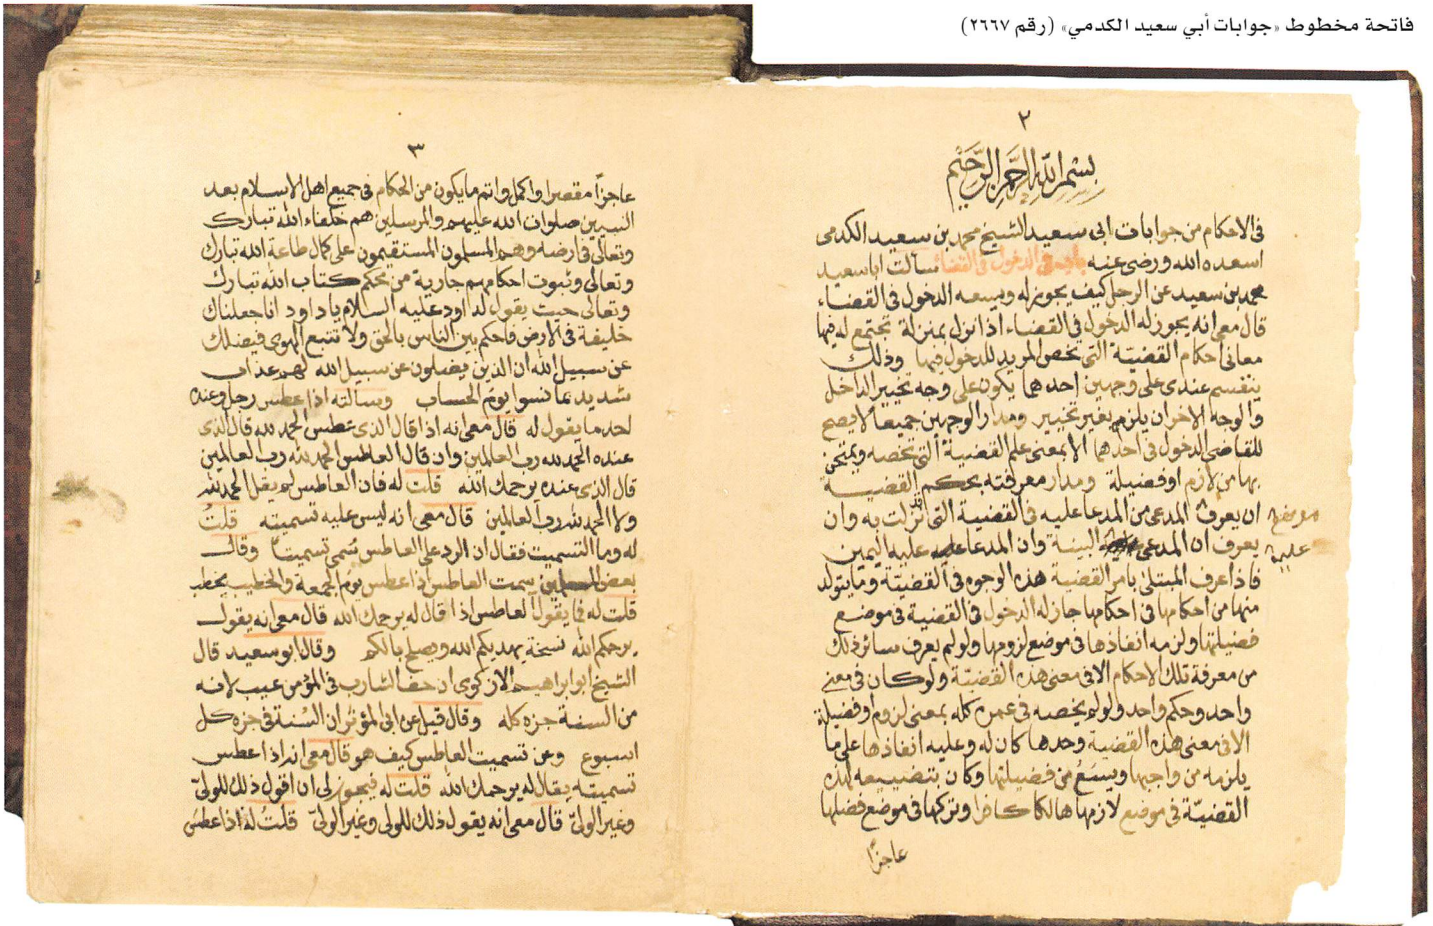 فاتحة مخطوط «جوابات أبي سعيد الكدمي» (رقم ٢٦٦٧)
٢
بسم الله الرحمن الرحيم
في الاحكام من جوابات ابي سعيد الشيخ محمد بن سعيد الكدمي
اسعده الله ورضي عنه باب في الدخول في القضاء سالت ابا سعيد
محمد بن سعيد عن الرجل كيف يجوز له ويسعه الدخول في القضاء
قال معي انه يجوز له الدخول في القضاء اذا نزل بمنزلة تجتمع له فيها
معاني احكام القضيّة التي تخص المريد للدخول فيها وذلك
ينقسم عندي على وجهين احدهما يكون على وجه تخيير الداخل
والوجه الاخر ان يلزم بغير تخيير ومدار الوجهين جميعًا لا يصح
للقاضي الدخول في احدهما الا بمعنى علم القضية التي تخصه ويمتحن
بها من لازم او فضيلة ومدار معرفته بحكم القضية
ان يعرف المدعي من المدعا عليه في القضية التي نزلت به وان
موضع
يعرف ان المدعي البينة وان المدعا عليه عليه اليمين
عليه
فاذا عرف المبتلى بامر القضية هذه الوجوه في القضيّة وما يتولد
منها من احكامها في احكامها جاز له الدخول في القضية في موضع
فضيلتها ولزمه انفاذها في موضع لزومها ولو لم يعرف سائر ذلك
من معرفة تلك الاحكام الا في معنى هذه القضيّة ولو كان في معنى
واحد وحكم واحد ولو لم يخصه في عمره كله بمعنى لزوم او فضيلة
الا في معنى هذه القضية وحدها كان له وعليه انفاذها على ما
يلزمه من واجبها ويسَعُ من فضيلتها وكان بتضييعه لهذه
القضيّة في موضع لازمها هالكا كافرا وتركها في موضع فضلها
عاجزًا
٣
عاجزًا مقصرا واكمل واتم ما يكون من الحكام في جميع اهل الاسلام بعد
النبيين صلوات الله عليهم والمرسلين هم خلفاء الله تبارك
وتعالى في ارضه وهم المسلمون المستقيمون على كمال طاعة الله تبارك
وتعالى وثبوت احكامهم جارية من محكم كتاب الله تبارك
وتعالى حيث يقول لداود عليه السلام ياداود انا جعلناك
خليفة في الارض فاحكم بين الناس بالحق ولا تتبع الهوى فيضلك
عن سبيل الله ان الذين يضلون عن سبيل الله لهم عذاب
شديد بما نسوا يوم الحساب وسالته اذا عطس رجل وعنده
احد ما يقول له قال معي انه اذا قال الذي عطس الحمد لله قال الذي
عنده الحمد لله رب العالمين وان قال العاطس الحمد لله رب العالمين
قال الذي عنده يرحمك الله قلت له فان العاطس لم يقل الحمد لله
ولا الحمد لله رب العالمين قال معي انه ليس عليه تسميته قلتُ
له وما التسميت فقال ان الرد على العاطس سُمي تسميتًا وقال
بعض المسلمين يسمت العاطس اذا عطس يوم الجمعة والخطيب يخطب
قلت له فما يقول العاطس اذا قال له يرحمك الله قال معي انه يقول
يرحمكم الله نسخة يهديكم الله ويصلح بالكم وقال ابو سعيد قال
الشيخ ابو ابراهيم الازكوي ان حف الشارب في المؤمن عيب لانه
من السنة جزه كله وقال قيل عن ابي المؤثر ان السُنة في جزه كل
اسبوع وعن تسميت العاطس كيف هو قال معي انه اذا عطس
تسميته يقال له يرحمك الله قلت له فيجوز لي ان اقول ذلك للوليّ
وغير الوليّ قال معي انه يقول ذلك للولي وغير الوليّ قلتُ له اذا عطسَ